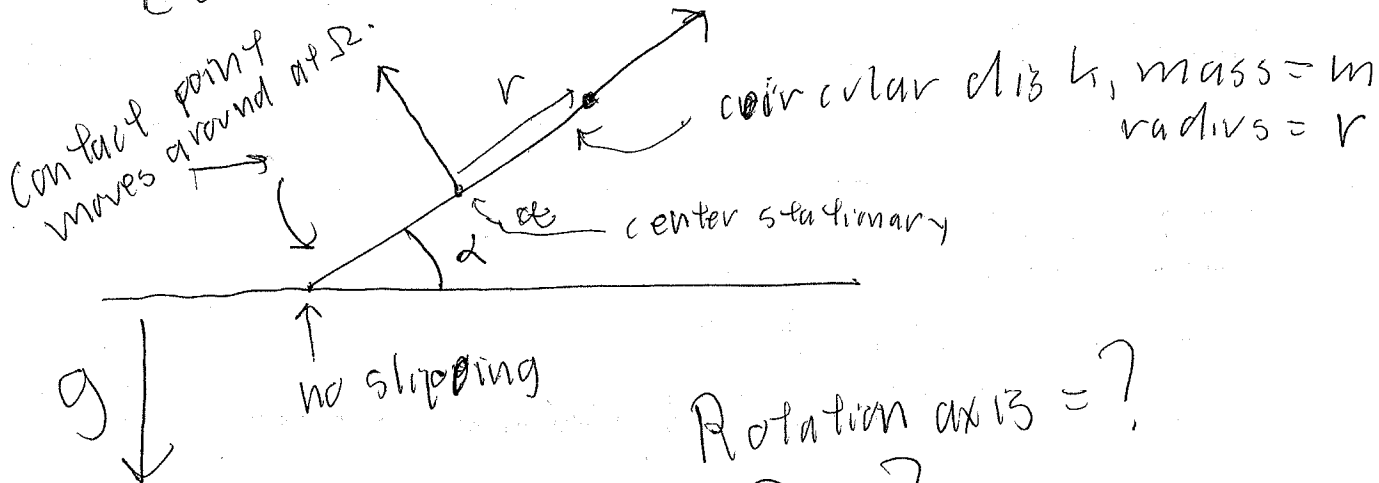 Contact point
moves around at Ω.
r
circular disk, mass = m
radius = r
center stationary
α
g
no slipping
Rotation axis = ?